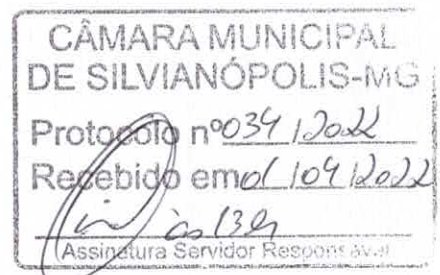 CÂMARA MUNICIPAL
DE SILVIANÓPOLIS-MG
Protocolo nº 034 / 2022
Recebido em 01 / 04 / 2022
às 13h
(Assinatura Servidor Responsável)